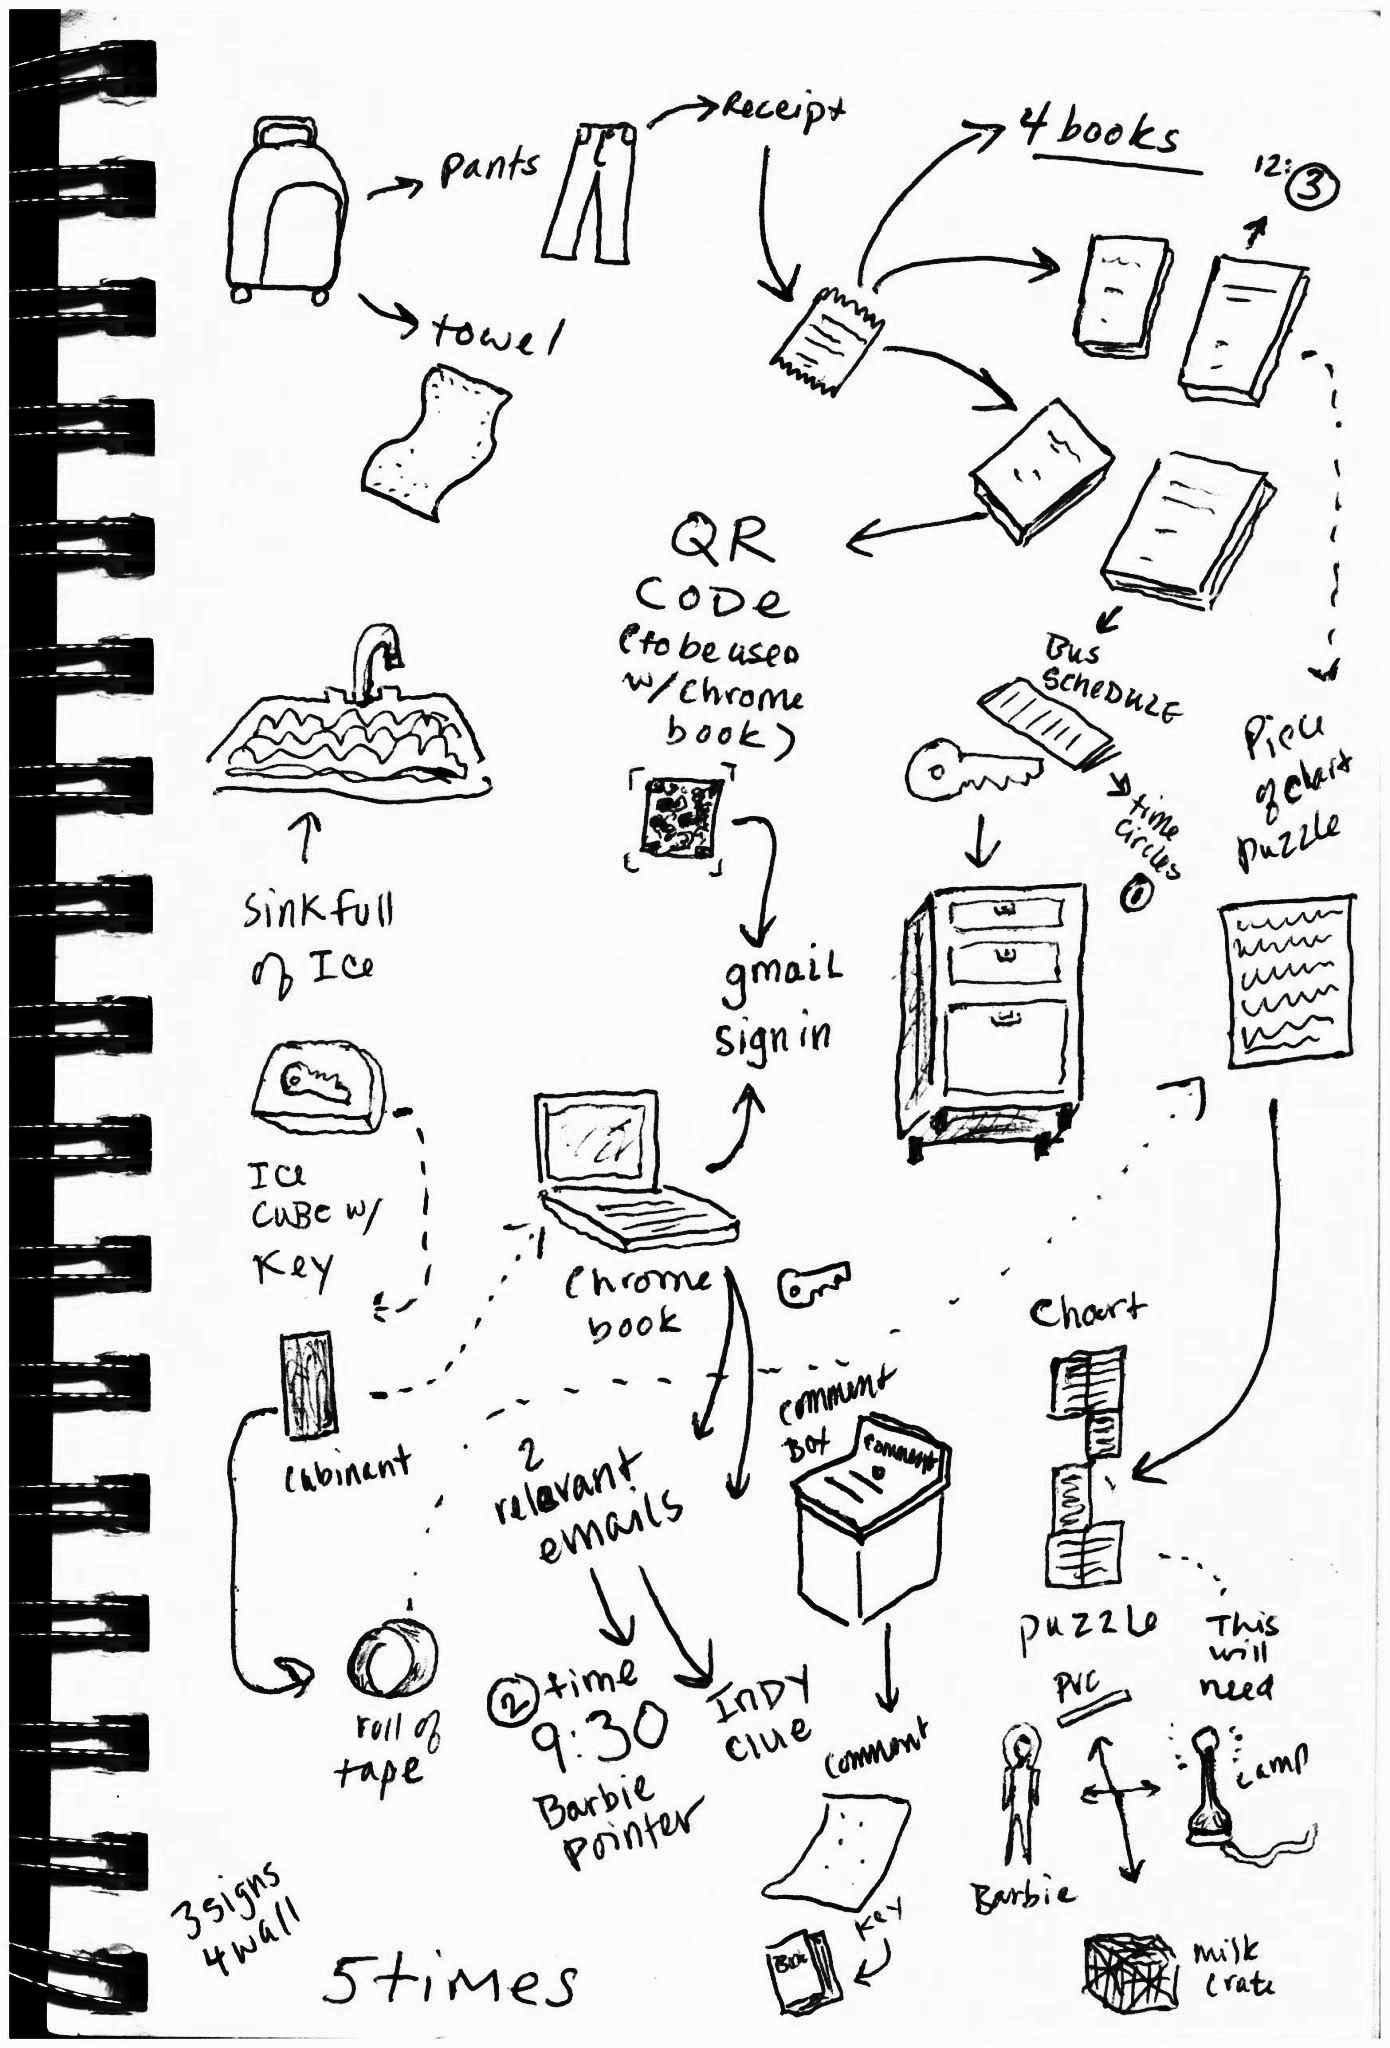 Receipt
4 books
12:
3
pants
towel
QR
CODe
(to be used
w/chrome
book)
Bus
ScheDULE
time
circles
Piece
of chart
puzzle
sink full
of Ice
gmail
sign in
Ice
CUBE w/
Key
Chrome
book
Chart
comment
Box
comment
cabinant
2
relevant
emails
puzzle
This
will
need
PVC
roll of
tape
2 time
9:30
Barbie
pointer
INDY
clue
comment
Lamp
Barbie
Key
Book
milk
crate
3 signs
4 wall
5 times